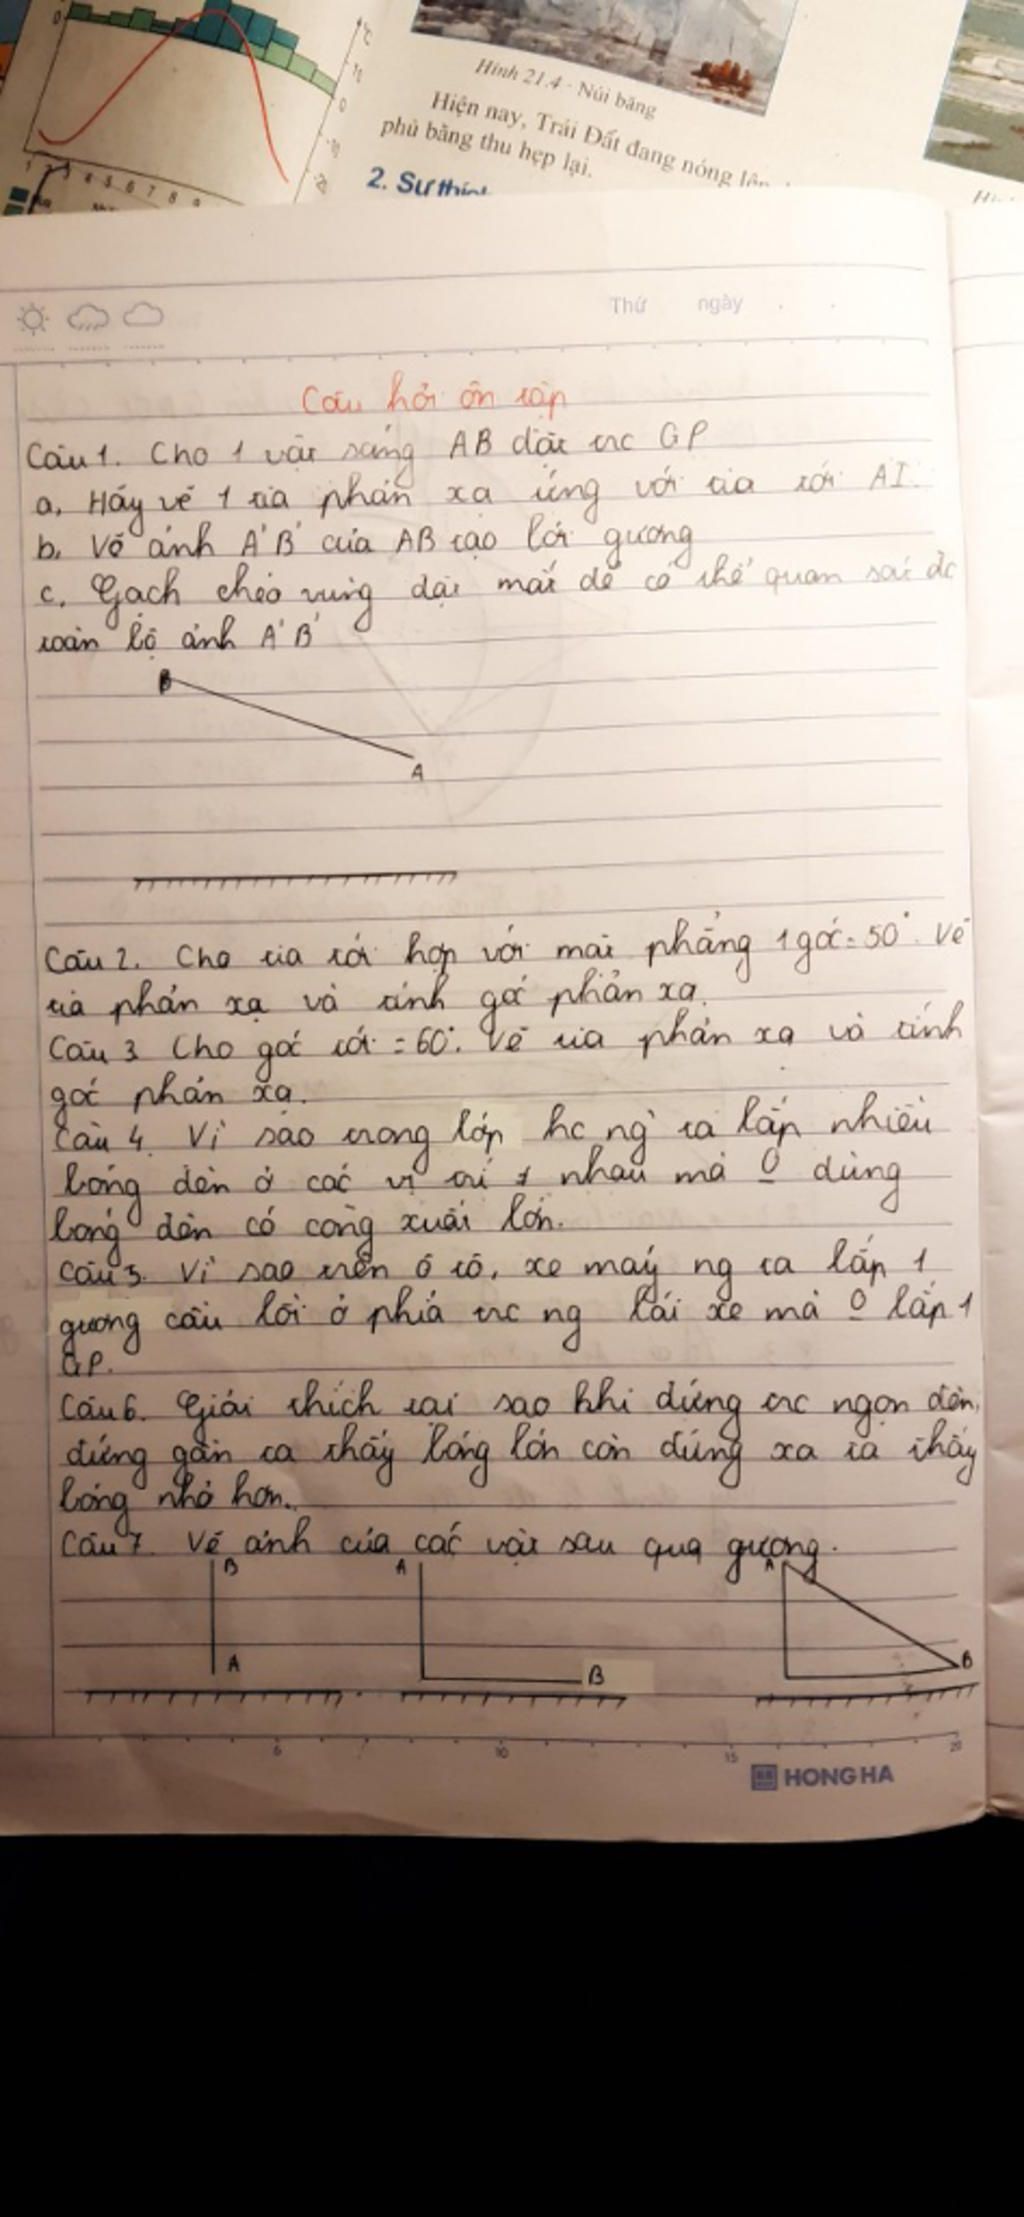 0
°C
10
0
-10
-20
1 2 3 4 5 6 7 8 9
Hình 21.4 - Núi băng
Hiện nay, Trái Đất đang nóng lên
phủ băng thu hẹp lại.
2. Sự thích
Thứ ngày
Câu hỏi ôn tập
Câu 1. Cho 1 vật sáng AB đặt trc GP
a. Hãy vẽ 1 tia phản xạ ứng với tia tới AI.
b. Vẽ ảnh A'B' của AB tạo bởi gương
c. Gạch chéo vùng đặt mắt để có thể quan sát đc
toàn bộ ảnh A'B'
B
A
Câu 2. Cho tia tới hợp với mặt phẳng 1 góc = 50°. Vẽ
tia phản xạ và tính góc phản xạ.
Câu 3 Cho góc tới = 60°. Vẽ tia phản xạ và tính
góc phản xạ.
Câu 4. Vì sao trong lớp hc ng ta lắp nhiều
bóng đèn ở các vị trí ≠ nhau mà O dùng
bóng đèn có công xuất lớn.
Câu 5. Vì sao trên ô tô, xe máy ng ta lắp 1
gương cầu lồi ở phía trc ng lái xe mà O lắp 1
GP.
Câu 6. Giải thích tại sao khi đứng trc ngọn đèn,
đứng gần ta thấy bóng lớn còn đứng xa ta thấy
bóng nhỏ hơn.
Câu 7. Vẽ ảnh của các vật sau qua gương.
B A A
A B B
5 10 15 20
HONG HA